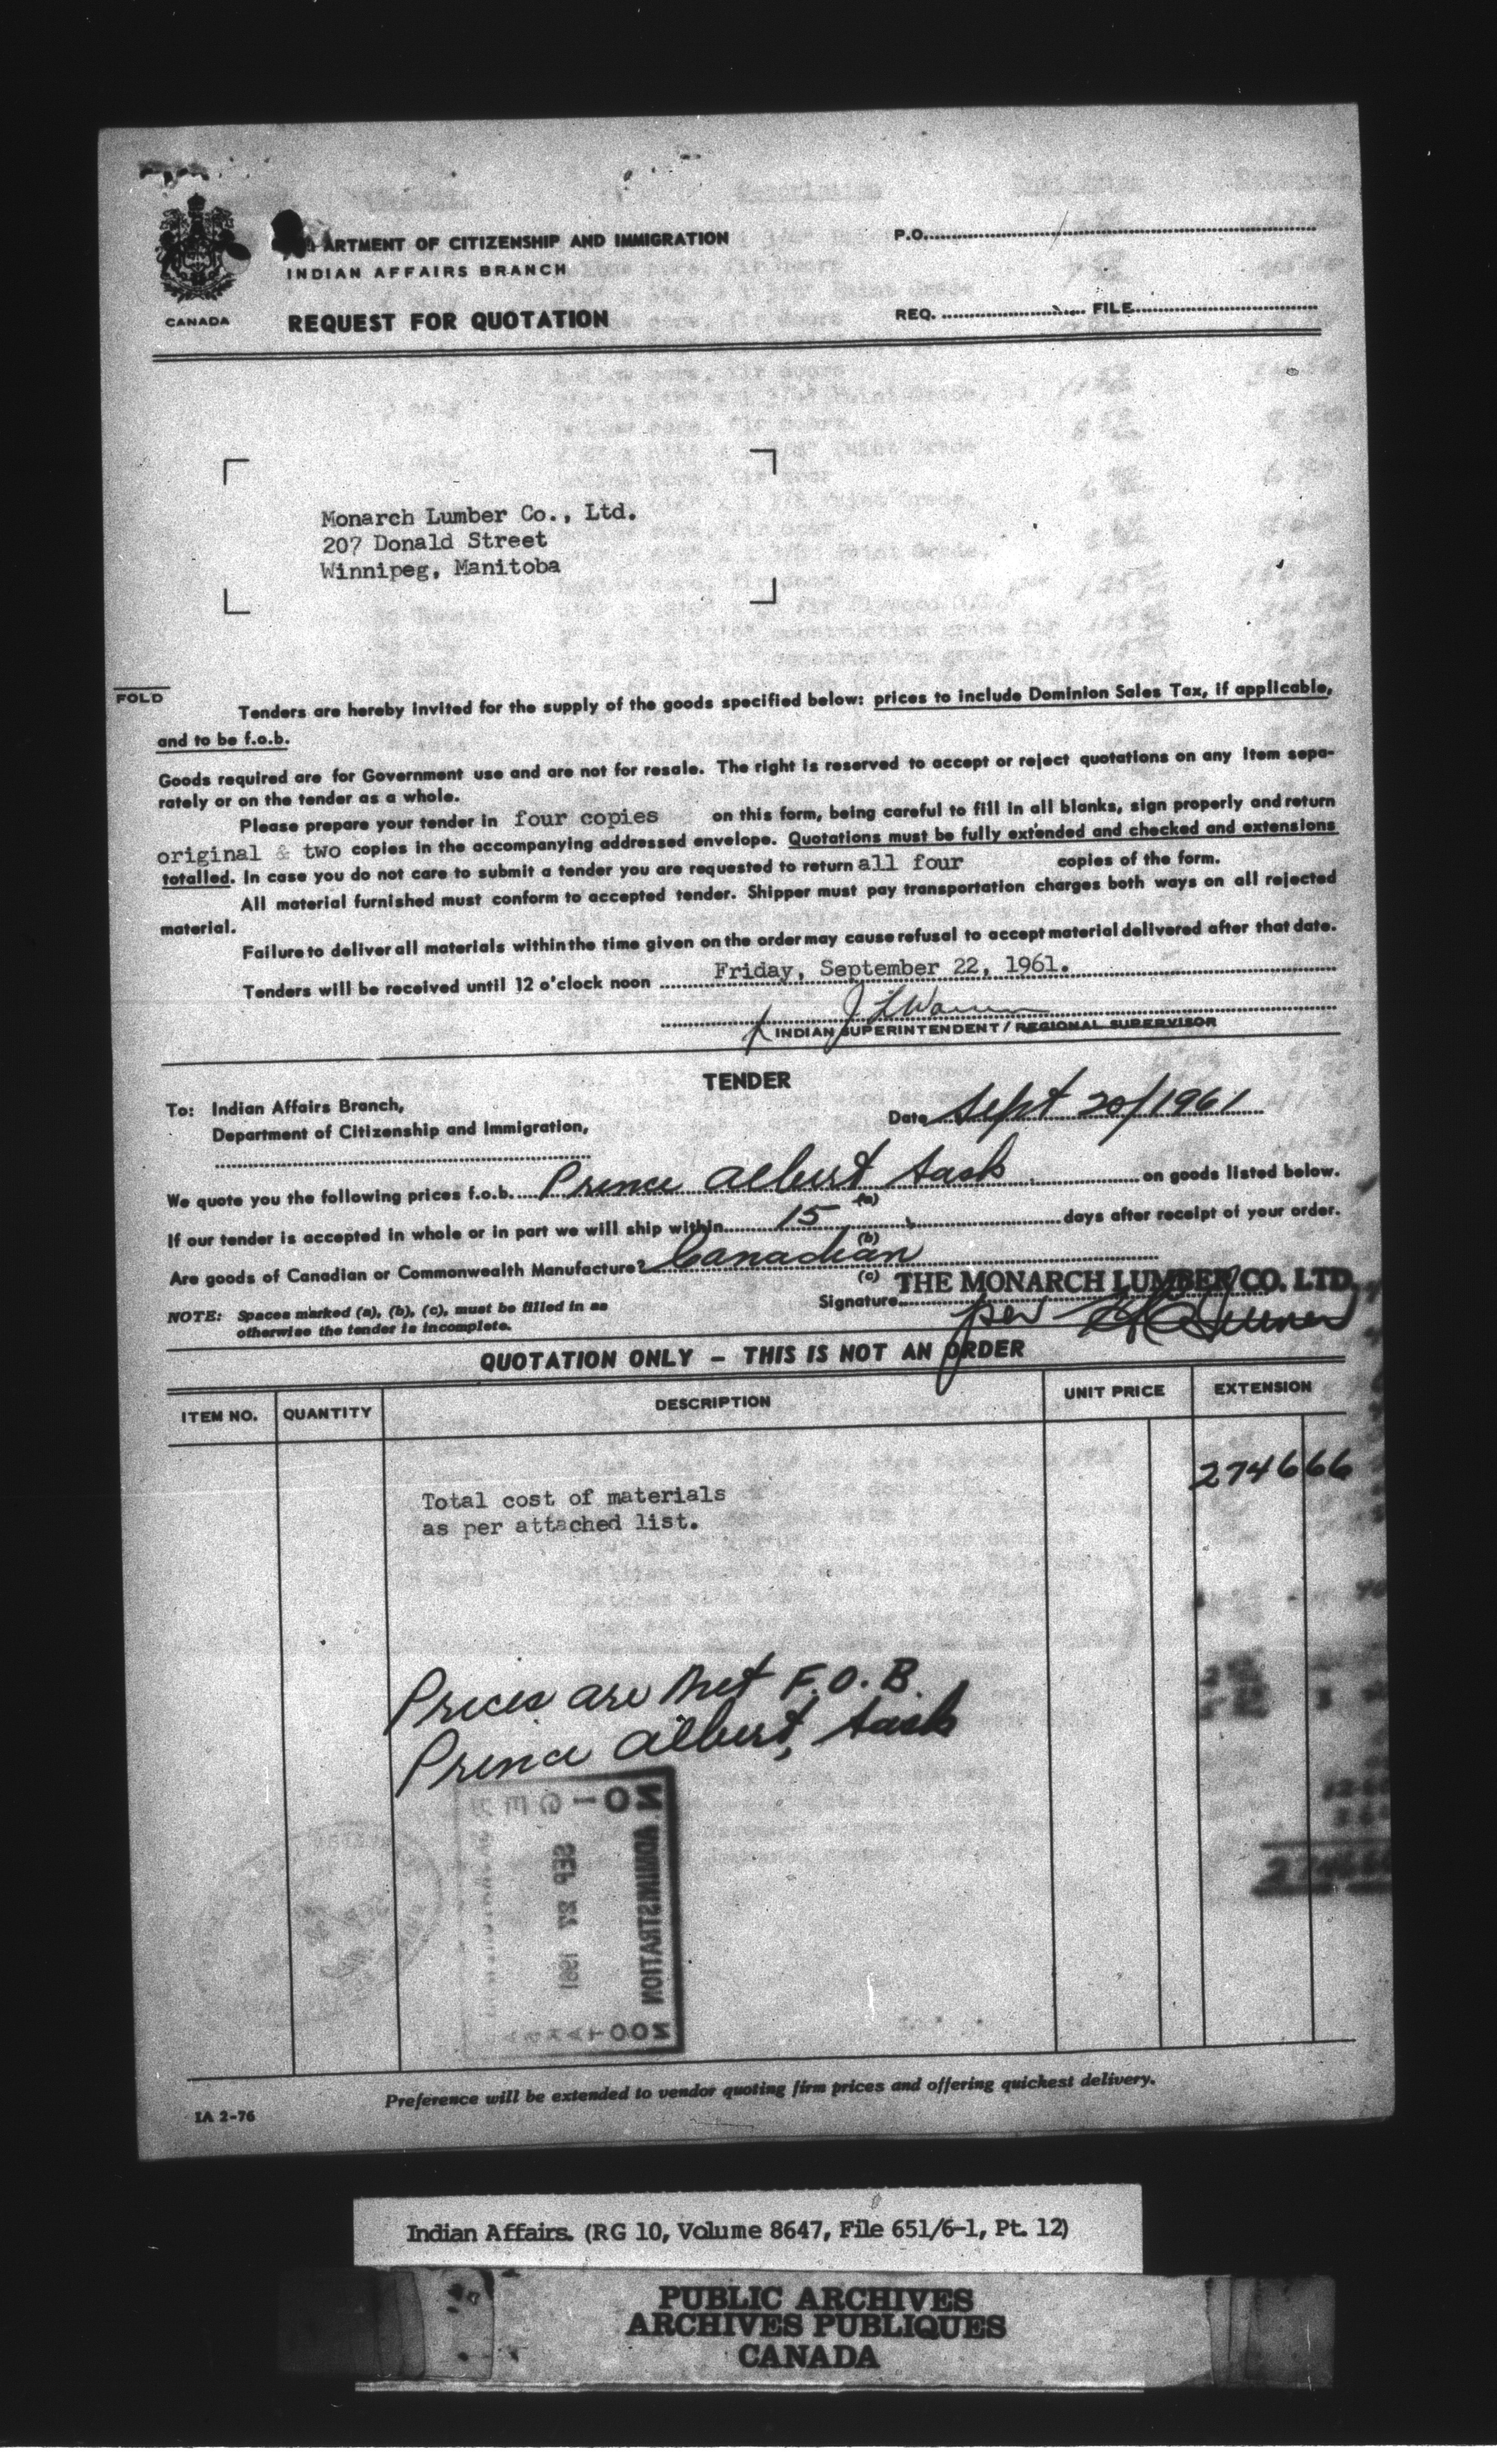 ARTMENT OF CITIZENSHIP AND IMMIGRATION
INDIAN AFFAIRS BRANCH
REQUEST FOR QUOTATION
CANADA
P.O.
REQ. FILE
Monarch Lumber Co., Ltd.
207 Donald Street
Winnipeg, Manitoba
FOLD
Tenders are hereby invited for the supply of the goods specified below: prices to include Dominion Sales Tax, if applicable,
and to be f.o.b.
Goods required are for Government use and are not for resale. The right is reserved to accept or reject quotations on any item sepa-
rately or on the tender as a whole.
Please prepare your tender in four copies on this form, being careful to fill in all blanks, sign properly and return
original & two copies in the accompanying addressed envelope. Quotations must be fully extended and checked and extensions
totalled. In case you do not care to submit a tender you are requested to return all four copies of the form.
All material furnished must conform to accepted tender. Shipper must pay transportation charges both ways on all rejected
material.
Failure to deliver all materials within the time given on the order may cause refusal to accept material delivered after that date.
Tenders will be received until 12 o'clock noon Friday, September 22, 1961.
J L Warren
INDIAN SUPERINTENDENT / REGIONAL SUPERVISOR
TENDER
To: Indian Affairs Branch,
Department of Citizenship and Immigration,
Date Sept 20/1961
We quote you the following prices f.o.b. Prince Albert Sask on goods listed below.
(a)
If our tender is accepted in whole or in part we will ship within 15 days after receipt of your order.
(b)
Are goods of Canadian or Commonwealth Manufacture? Canadian
(c)
THE MONARCH LUMBER CO. LTD.
Signature
per
NOTE: Spaces marked (a), (b), (c), must be filled in as
otherwise the tender is incomplete.
QUOTATION ONLY – THIS IS NOT AN ORDER
ITEM NO. QUANTITY DESCRIPTION UNIT PRICE EXTENSION
2746 66
Total cost of materials
as per attached list.
Prices are Net F.O.B.
Prince Albert, Sask
ADMINISTRATION
SEP 27 1961
Preference will be extended to vendor quoting firm prices and offering quickest delivery.
IA 2-76
Indian Affairs. (RG 10, Volume 8647, File 651/6-1, Pt. 12)
PUBLIC ARCHIVES
ARCHIVES PUBLIQUES
CANADA